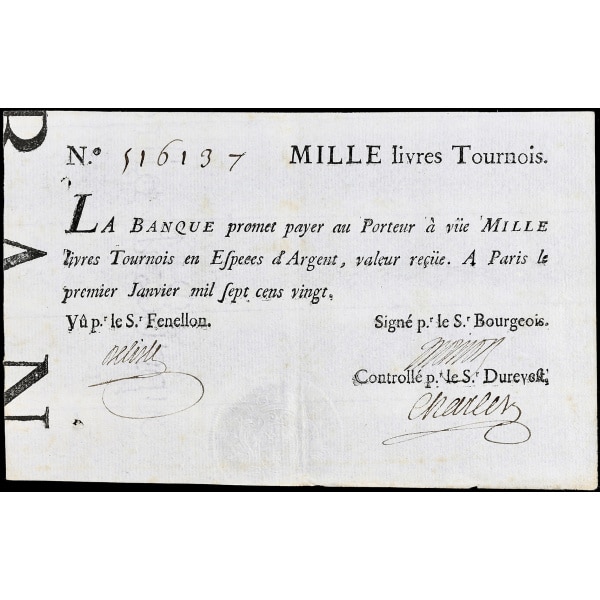 BAN
N.º 516137 MILLE livres Tournois.
LA BANQUE promet payer au Porteur à vüe MILLE
livres Tournois en Eſpeces d'Argent, valeur reçüe. A Paris le
premier Janvier mil ſept cens vingt.
Vû p.r le S.r Fenellon. Signé p.r le S.r Bourgeois.
Delisle
Controllé p.r le S.r Durevest.